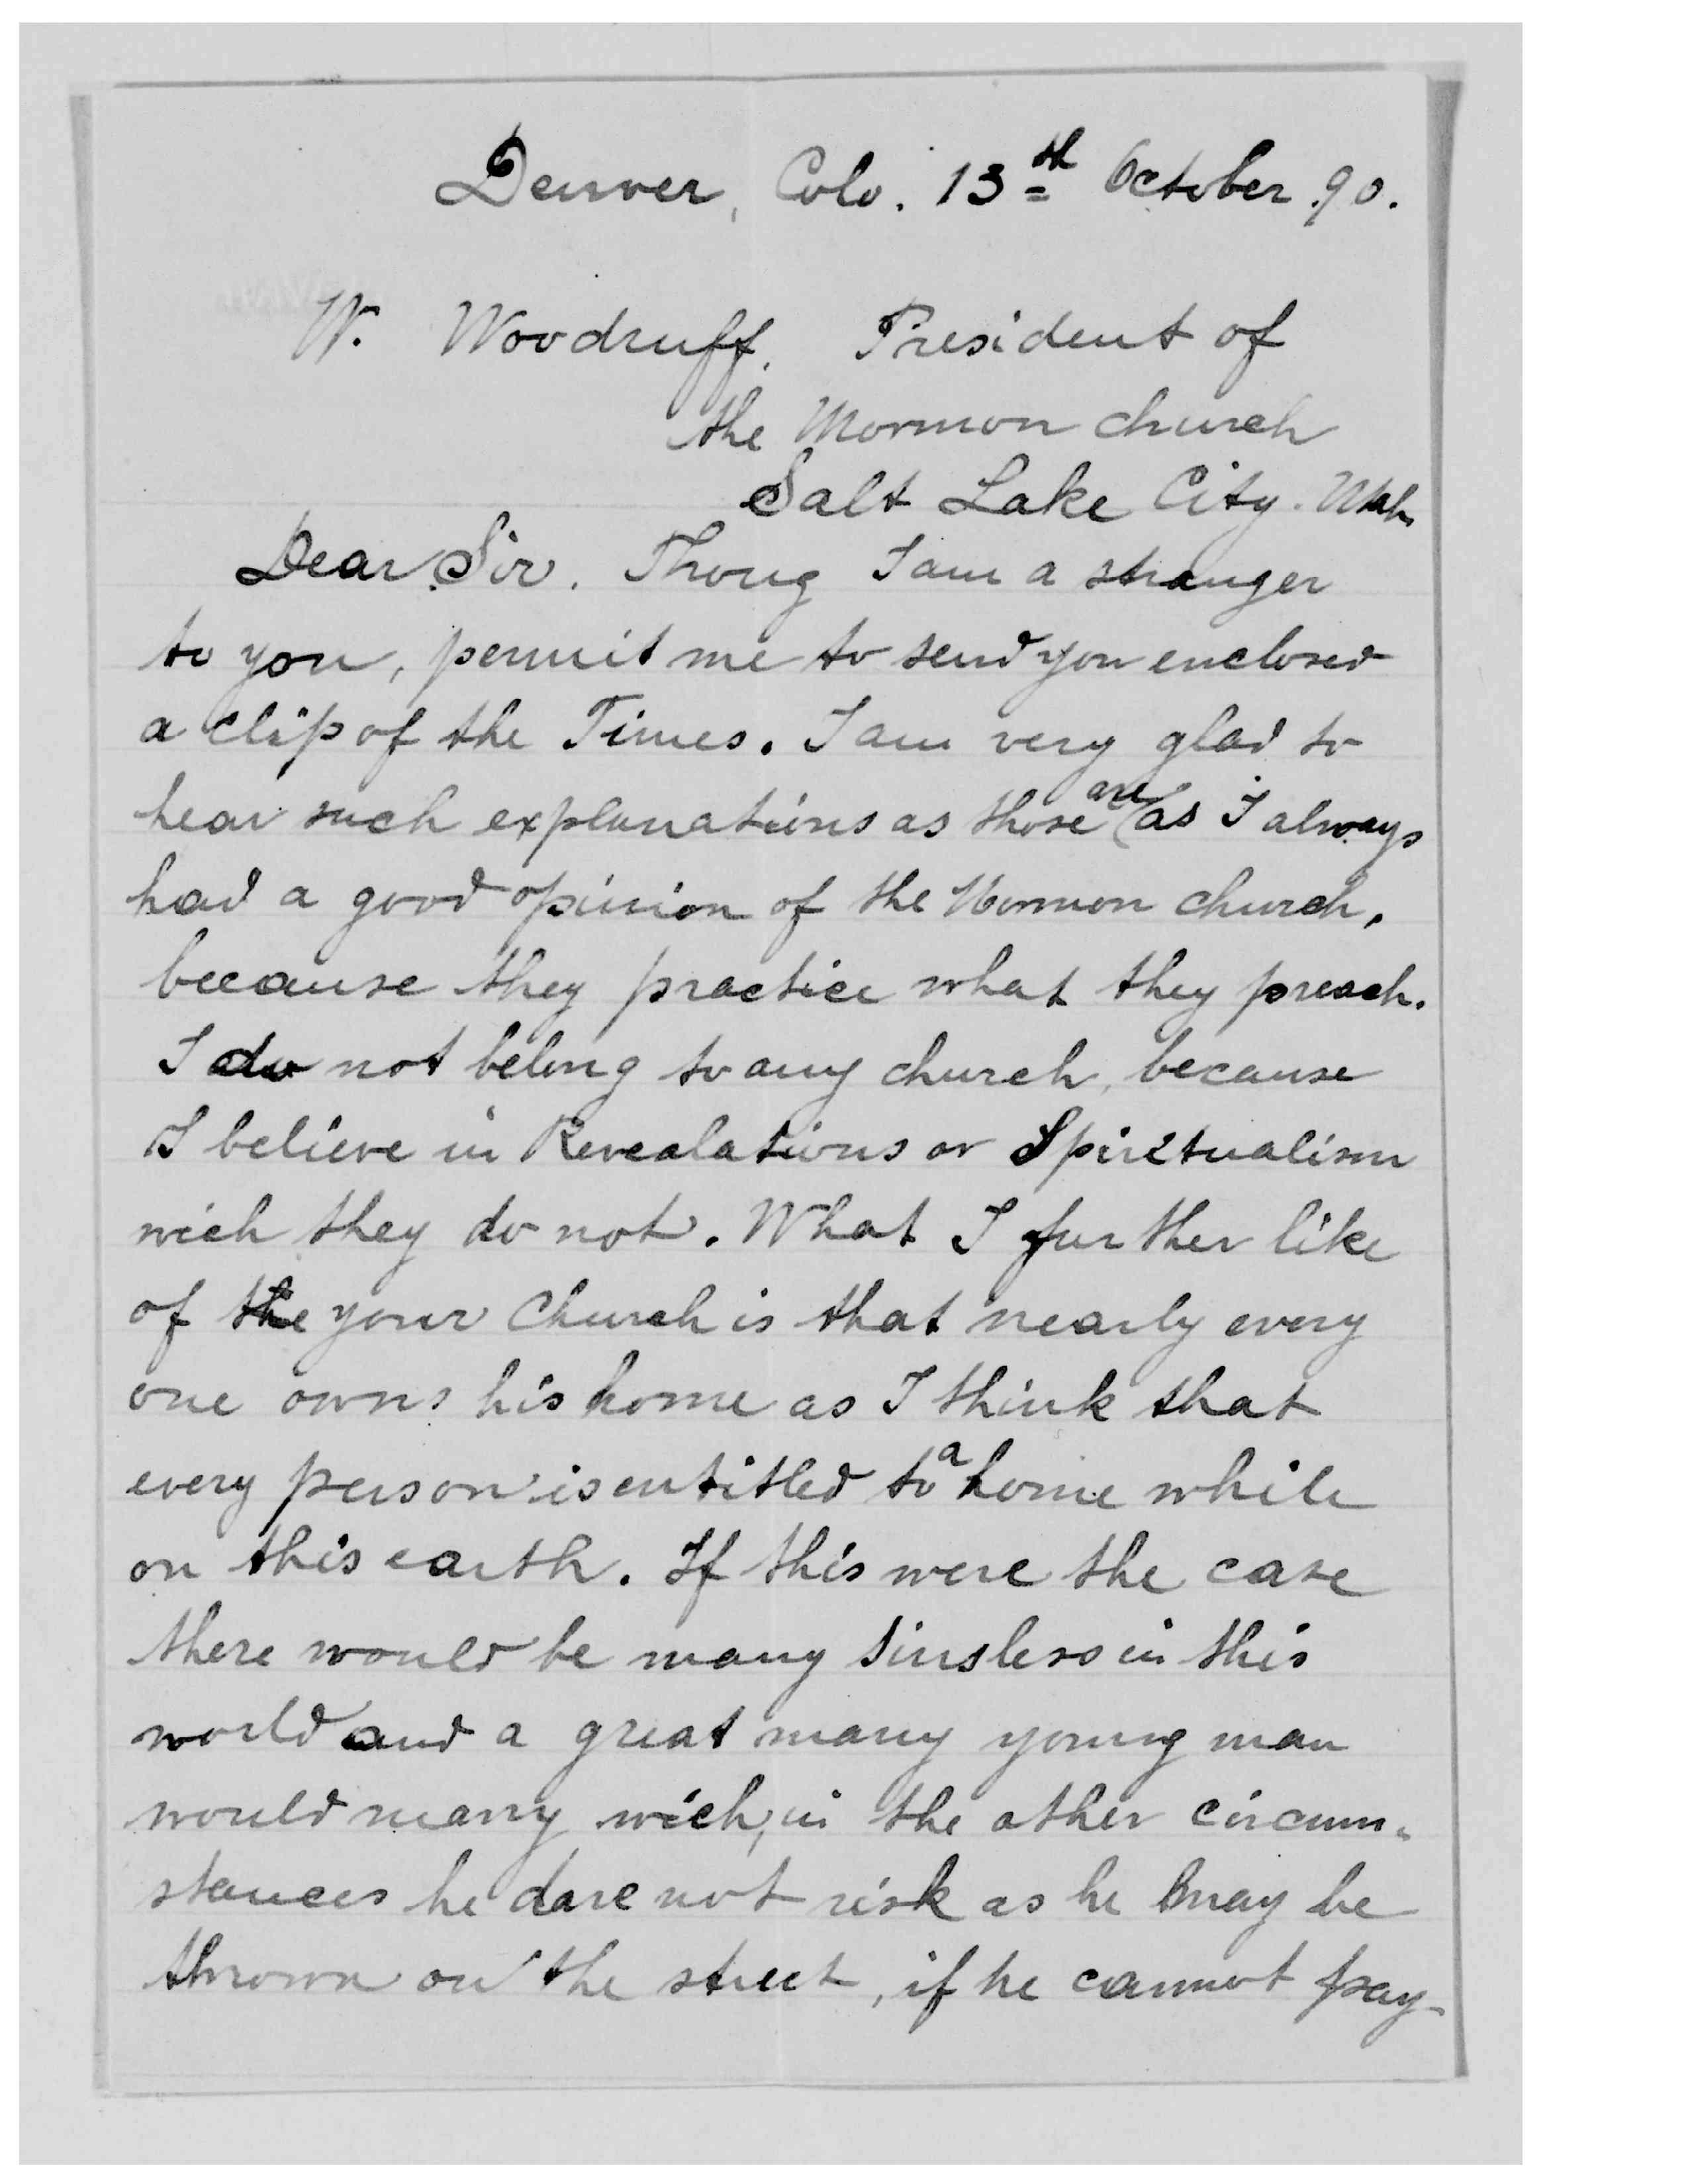 Denver, Colo. 13th October 90.
W. Woodruff. President of
the Mormon church
Salt Lake City. Utah
Dear Sir. Thoug I am a stranger
to you, permit me to send you enclosed
a clip of the Times. I am very glad to
hear such explanations as those are as I always
had a good opinion of the Mormon church,
because they practice what they preach.
I do not belong to any church, because
I believe in Revealations or Spiritualism
wich they do not. What I further like
of the your Church is that nearly every
one owns his home as I think that
every person is entitled to a home while
on this earth. If this were the case
there would be many sins less in this
world and a great many young man
would marry wich, in the other circum-
stances he dare not risk as he may be
thrown on the street, if he cannot pay